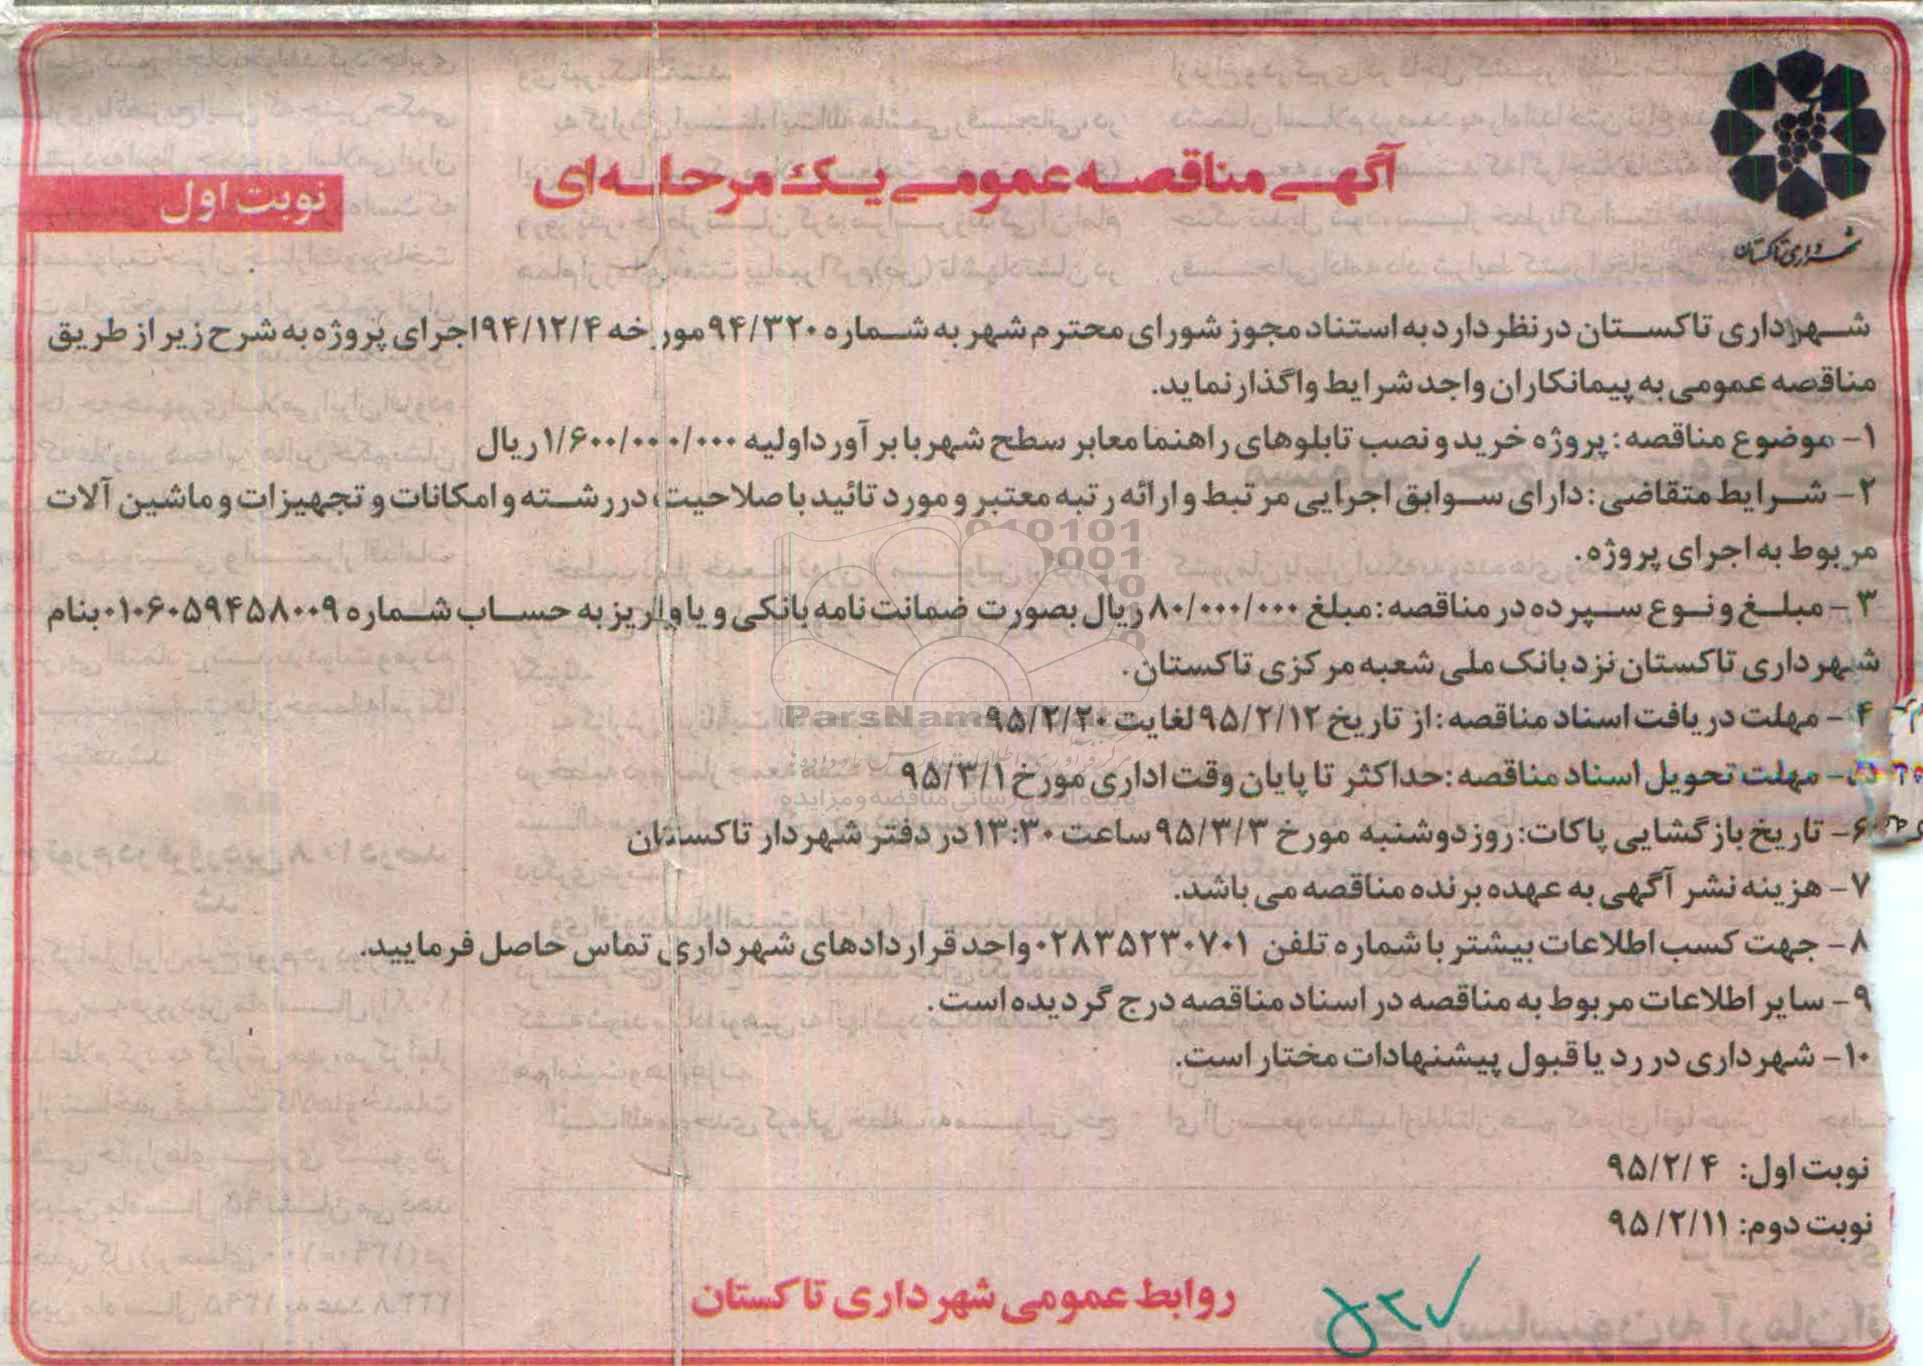 شهرداری تاکستان
آگهی مناقصه عمومی یک مرحله ای
نوبت اول
شهرداری تاکستان در نظر دارد به استناد مجوز شورای محترم شهر به شماره ۹۴/۳۲۰ مورخه ۹۴/۱۲/۴ اجرای پروژه به شرح زیر از طریق
مناقصه عمومی به پیمانکاران واجد شرایط واگذار نماید.
۱- موضوع مناقصه: پروژه خرید و نصب تابلوهای راهنما معابر سطح شهر با برآورد اولیه ۱/۶۰۰/۰۰۰/۰۰۰ ریال
۲- شرایط متقاضی: دارای سوابق اجرایی مرتبط و ارائه رتبه معتبر و مورد تائید با صلاحیت در رشته و امکانات و تجهیزات و ماشین آلات
مربوط به اجرای پروژه.
۳- مبلغ و نوع سپرده در مناقصه: مبلغ ۸۰/۰۰۰/۰۰۰ ریال بصورت ضمانت نامه بانکی و یا واریز به حساب شماره ۰۱۰۶۰۵۹۴۵۸۰۰۹ بنام
شهرداری تاکستان نزد بانک ملی شعبه مرکزی تاکستان.
۴- مهلت دریافت اسناد مناقصه: از تاریخ ۹۵/۲/۱۲ لغایت ۹۵/۲/۲۰
۵- مهلت تحویل اسناد مناقصه: حداکثر تا پایان وقت اداری مورخ ۹۵/۳/۱
۶- تاریخ بازگشایی پاکات: روز دوشنبه مورخ ۹۵/۳/۳ ساعت ۱۳:۳۰ در دفتر شهردار تاکستان
۷- هزینه نشر آگهی به عهده برنده مناقصه می باشد.
۸- جهت کسب اطلاعات بیشتر با شماره تلفن ۰۲۸۳۵۲۳۰۷۰۱ واحد قراردادهای شهرداری تماس حاصل فرمایید.
۹- سایر اطلاعات مربوط به مناقصه در اسناد مناقصه درج گردیده است.
۱۰- شهرداری در رد یا قبول پیشنهادات مختار است.
نوبت اول: ۹۵/۲/۴
نوبت دوم: ۹۵/۲/۱۱
روابط عمومی شهرداری تاکستان